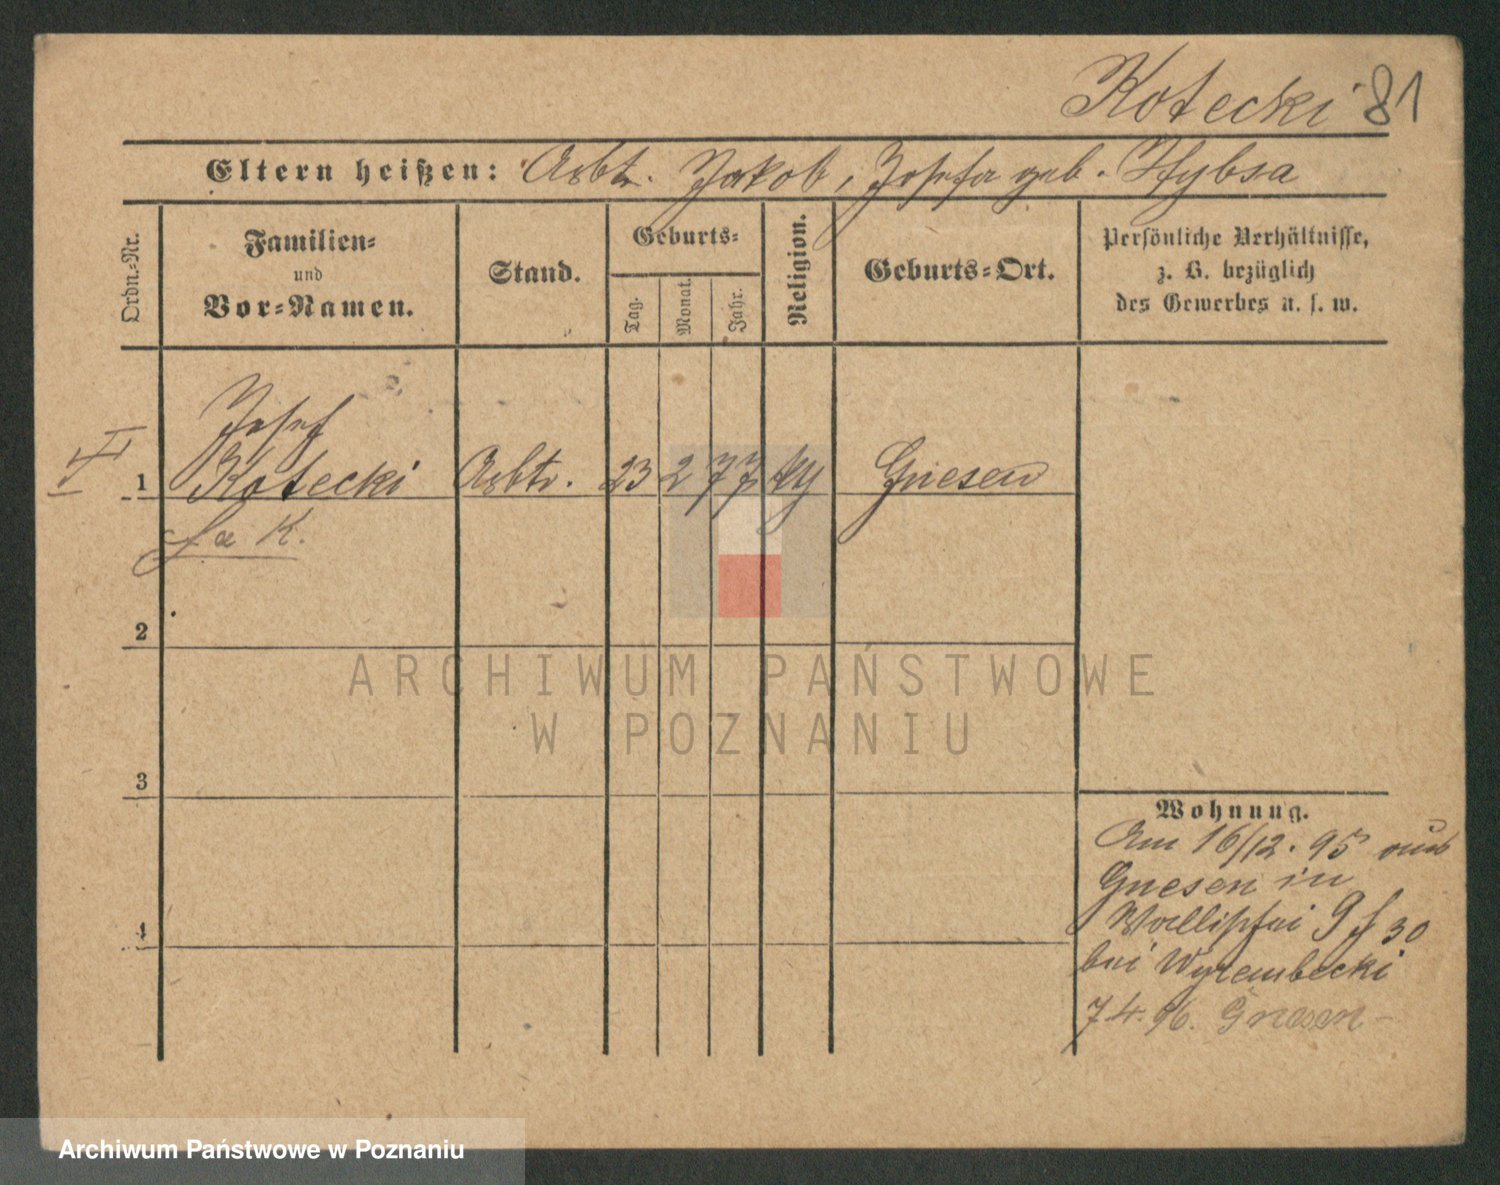 Kotecki 81
Eltern heißen: Arbtr. Jakob, Josefa geb. Hybsa
Ordn.-Nr.
Familien-
und
Vor-Namen.
Stand.
Geburts-
Tag.
Monat.
Jahr.
Religion.
Geburts-Ort.
Persönliche Verhältnisse,
z. B. bezüglich
des Gewerbes u. s. w.
Josef
1 Kotecki Arbtr. 23 2 77 Gnesen
K.
2
ARCHIWUM PAŃSTWOWE
W POZNANIU
3
4
Wohnung.
Am 16/12. 95 aus
Gnesen in
Wallischei 30
bei Wyrembecki
7 4. 96. Gnesen
Archiwum Państwowe w Poznaniu